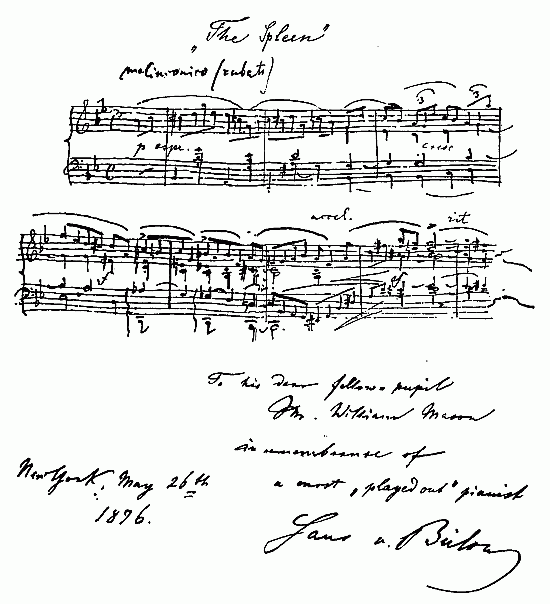 „The Spleen"
malinconico (rubato)
p espr.
cresc
accel.
rit
To his dear fellow-pupil
Mr. William Mason
in remembrance of
a most „played out" pianist
New York, May 26th
1876.
Hans v. Bülow